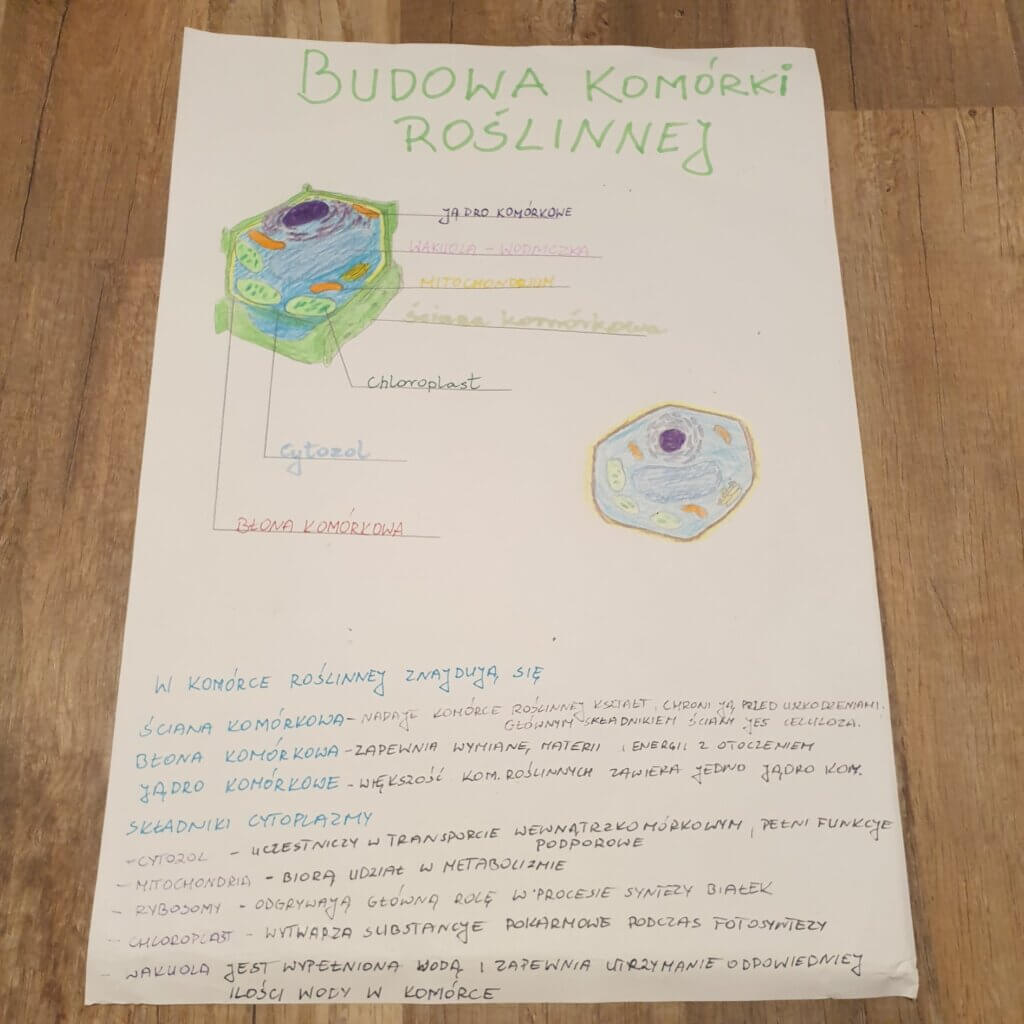 BUDOWA KOMÓRKI
ROŚLINNEJ
JĄDRO KOMÓRKOWE
WAKUOLA - WODNICZKA
MITOCHONDRIUM
ściana komórkowa
Chloroplast
Cytozol
BŁONA KOMÓRKOWA
W KOMÓRCE ROŚLINNEJ ZNAJDUJĄ SIĘ
ŚCIANA KOMÓRKOWA - NADAJE KOMÓRCE ROŚLINNEJ KSZTAŁT, CHRONI JĄ PRZED USZKODZENIAMI.
GŁÓWNYM SKŁADNIKIEM ŚCIANY JES CELULOZA.
BŁONA KOMÓRKOWA - ZAPEWNIA WYMIANĘ MATERII I ENERGII Z OTOCZENIEM
JĄDRO KOMÓRKOWE - WIĘKSZOŚĆ KOM. ROŚLINNYCH ZAWIERA JEDNO JĄDRO KOM.
SKŁADNIKI CYTOPLAZMY
- CYTOZOL - UCZESTNICZY W TRANSPORCIE WEWNĄTRZKOMÓRKOWYM, PEŁNI FUNKCJE
PODPOROWE
- MITOCHONDRIA - BIORĄ UDZIAŁ W METABOLIZMIE
- RYBOSOMY - ODGRYWAJĄ GŁÓWNĄ ROLĘ W PROCESIE SYNTEZY BIAŁEK
- CHLOROPLAST - WYTWARZA SUBSTANCJE POKARMOWE PODCZAS FOTOSYNTEZY
- WAKUOLA JEST WYPEŁNIONA WODĄ I ZAPEWNIA UTRZYMANIE ODPOWIEDNIEJ
ILOŚCI WODY W KOMÓRCE